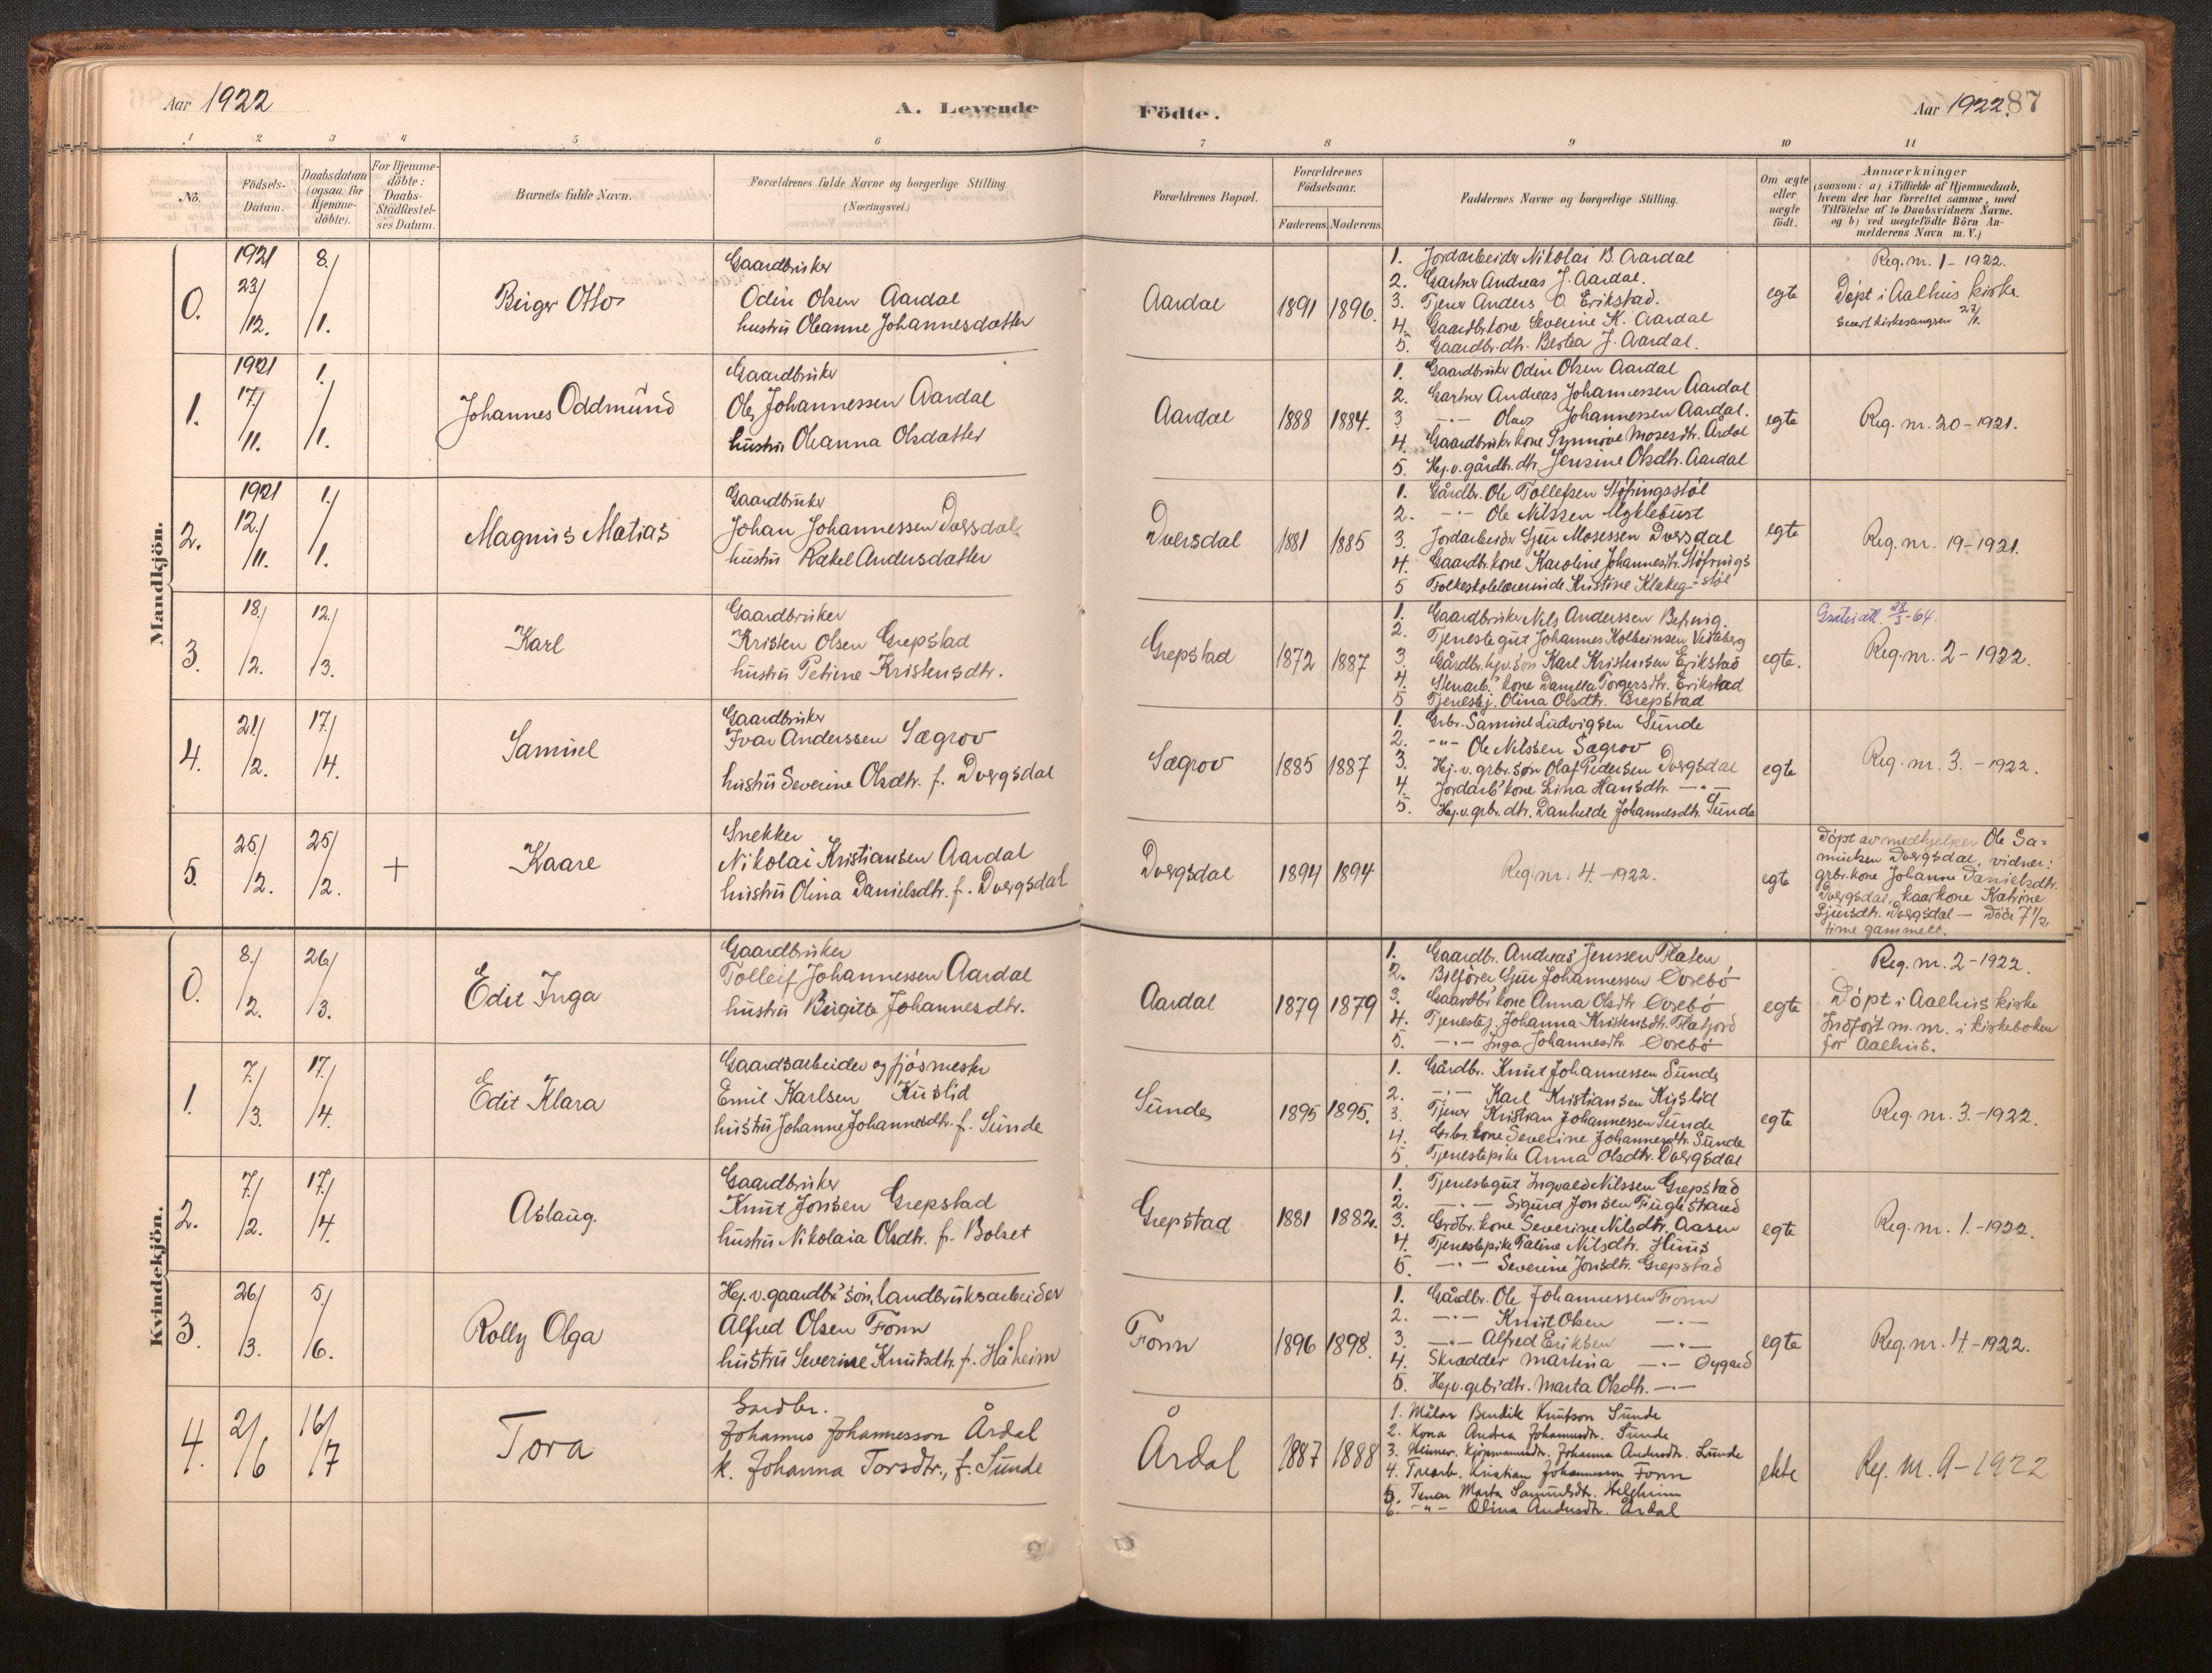 Aar 1922
A. Levende
Födte.
Aar 1922. 87
1 2 3 4 5 6 7 8 9 10 11
No.
Födsels-
Datum.
Daabsdatum
(ogsaa for
Hjemme-
döbte).
For Hjemme-
döbte:
Daabs-
Stadfæstel-
ses Datum.
Barnets fulde Navn.
Forældrenes fulde Navne og borgerlige Stilling.
(Næringsvei.)
Forældrenes Bopæl.
Forældrenes
Födselsaar.
Faderens. Moderens.
Faddernes Navne og borgerlige Stilling.
Om ægte
eller
uægte
födt.
Anmærkninger
(saasom: a) i Tilfælde af Hjemmedaab,
hvem der har forrettet samme, med
Tilföielse af to Daabsvidners Navne,
og b) ved uægtefödte Börn An-
melderens Navn m. V.)
Mandkjön.
0.
1921
23/
/12.
8./
/1.
Birger Otto
Gaardbruker
Odin Olsen Aardal
hustru Oleanne Johannesdatter
Aardal
1891 1896.
1. Jordarbeider Nikolai B. Aardal
2. Gartner Andreas J. Aardal.
3. Tjener Anders O. Erikstad.
4. Gaardbr.kone Severine K. Aardal
5. Gaardbr.dtr. Bertea J. Aardal.
egte
Reg. nr. 1 - 1922.
Döpt i Aalhus kirke
27/1.
1.
1921
17/
/11.
1./
/1.
Johannes Oddmund
Gaardbruker
Ole Johannessen Aardal
hustru Oleanna Olsdatter
Aardal
1888 1884.
1. Gaardbruker Odin Olsen Aardal
2. Gartner Andreas Johannessen Aardal
3 -"- Olav Johannessen Aardal.
4. Gaardbrukerkone Synnöve Mosesdtr. Årdal
5. Hj.v. gårdbr. dtr. Jensine Olsdtr. Aardal
egte
Reg. nr. 20 - 1921.
2.
1921
12./
/11.
1./
/1.
Magnus Matias
Gaardbruker
Johan Johannessen Dversdal
hustru Rakel Andersdatter
Dversdal
1881 1885
1. Gårdbr. Ole Tollefsen Stöfringsstöl
2. -"- Ole Nilssen Myklebust
3. Jordarbeider Gjur Mosessen Dversdal
4. Gaardbr.kone Karoline Johannesdtr. Stöfrings-
stöl
5 Folkeskolelærerinde Kristine Klakeg
egte
Reg. nr. 19 - 1921.
3.
18./
/2.
12./
/3.
Karl
Gaardbruker
Kristen Olsen Grepstad
hustru Petrine Kristensdtr.
Grepstad
1872 1887
1. Gaardbruker Nils Anderssen Befring.
2. Tjenestegut Johannes Kolbeinsen Viteberg
3. Gårdbr. hjv. sön Karl Kristensen Erikstad
4. Stenarb. kone Danilla Torgersdtr. Erikstad
5 Tjenestej. Olina Olsdtr. Grepstad
egte.
28/3-64.
Reg. nr. 2 - 1922.
4.
21/
/2.
17./
/4.
Samuel
Gaardbruker
Ivar Anderssen Sægrov
hustru Severine Olsdtr. f. Dvergsdal
Sægrov
1885 1887
1. Grbr. Samuel Ludvigsen Sunde
2. -"- Ole Nilssen Sægrov
3. Hj. v. grbr. sön Olaf Pedersen Dvergsdal
4. Jordarb. kone Lina Hansdtr. -"-
5. Hj. v. grbr. dtr. Danheide Johannesdtr. Sunde
egte
Reg. nr. 3. - 1922.
5.
25/
/2.
25/
/2.
+
Kaare
Snekker
Nikolai Kristiansen Aardal
hustru Olina Danielsdtr. f. Dvergsdal
Dvergsdal
1894 1894
Reg. nr. 4. - 1922.
egte
Döpt av medhjelper Ole Sa-
muelsen Dvergsdal, vidner:
grbr. kone Johanne Danielsdtr.
Dvergsdal, kaarkone Katrine
Gjursdtr. Dvergsdal - Död 7 1/2
time gammelt.
Kvindekjön.
0.
8./
/2.
26/
/3.
Edit Inga
Gaardbruker
Tolleif Johannessen Aardal
hustru Birgitte Johannesdtr.
Aardal
1879 1879
1. Gaardbr. Andreas Jenssen Flaten
2. Bilförer Gjur Johannessen Övrebö
3. Gaardbr. kone Anna Olsdtr. Övrebö
4. Tjenestej. Johanna Kristensdtr. Flatjord
5. -"- Inga Johannesdtr. Övrebö
egte
Reg. nr. 2 - 1922.
Döpt i Aalhus kirke
Indfört m. nr. i kirkeboken
for Aalhus.
1.
7./
/3.
17./
/4.
Edit Klara
Gaardsarbeider og fjösmester
Emil Karlsen Kuslid
hustru Johanne Johannesdtr. f. Sunde
Sunde
1895 1895.
1. Gårdbr. Knut Johannessen Sunde
2. -"- Karl Kristiansen Kuslid
3. Tjener Kristian Johannessen Sunde
4. Grbr. kone Severine Johannesdtr. Sunde
5. Tjenestepike Anna Olsdtr. Dvergsdal
egte
Reg. nr. 3. - 1922.
2.
7./
/2.
17./
/4.
Aslaug.
Gaardbruker
Knut Jonsen Grepstad
hustru Nikolaia Olsdtr. f. Bolset
Grepstad
1881 1882.
1. Tjenestegut Ingvald Nilssen Grepstad
2. -"- Sigurd Jonsen Fuglestrand
3. Grdbr. kone Severine Nilsdtr. Aasen
4. Tjenestepike Paline Nilsdtr. Huus
5. -"- Severine Jonsdtr. Grepstad
egte
Reg. nr. 1. - 1922.
3.
26/
/3.
5./
/6.
Rolly Olga
Hj. v. gaardbr. sön, landbruksarbeider
Alfred Olsen Fonn
hustru Severine Knutsdtr. f. Håheim
Fonn
1896 1898.
1. Gårdbr. Ole Johannessen Fonn
2. -"- Knut Olsen -"-
3. -"- Alfred Eriksen -"-
4. Skrædder Martina -"- Öygard
5. Hj. v. grbr. dtr. Marta Olsdtr. -"-
egte
Reg. nr. 4. - 1922.
4.
2/
/6
16/
/7
Tora
Gardbr.
Johannes Johannesson Årdal
k. Johanna Torsdtr., f. Sunde
Årdal
1887 1888
1. Målar Bendik Knutson Sunde
2. Kona Andrea Johannesdtr. Sunde
3. Heimev. kjöpmannsdtr. Johanna Andersdtr. Sunde
4. Trearb. Kristian Johannesson Fonn
5. Tenar Marta Samuelsdtr. Helgheim
6. -"- Olina Andersdtr. Årdal
ekte
Reg. nr. 9 - 1922